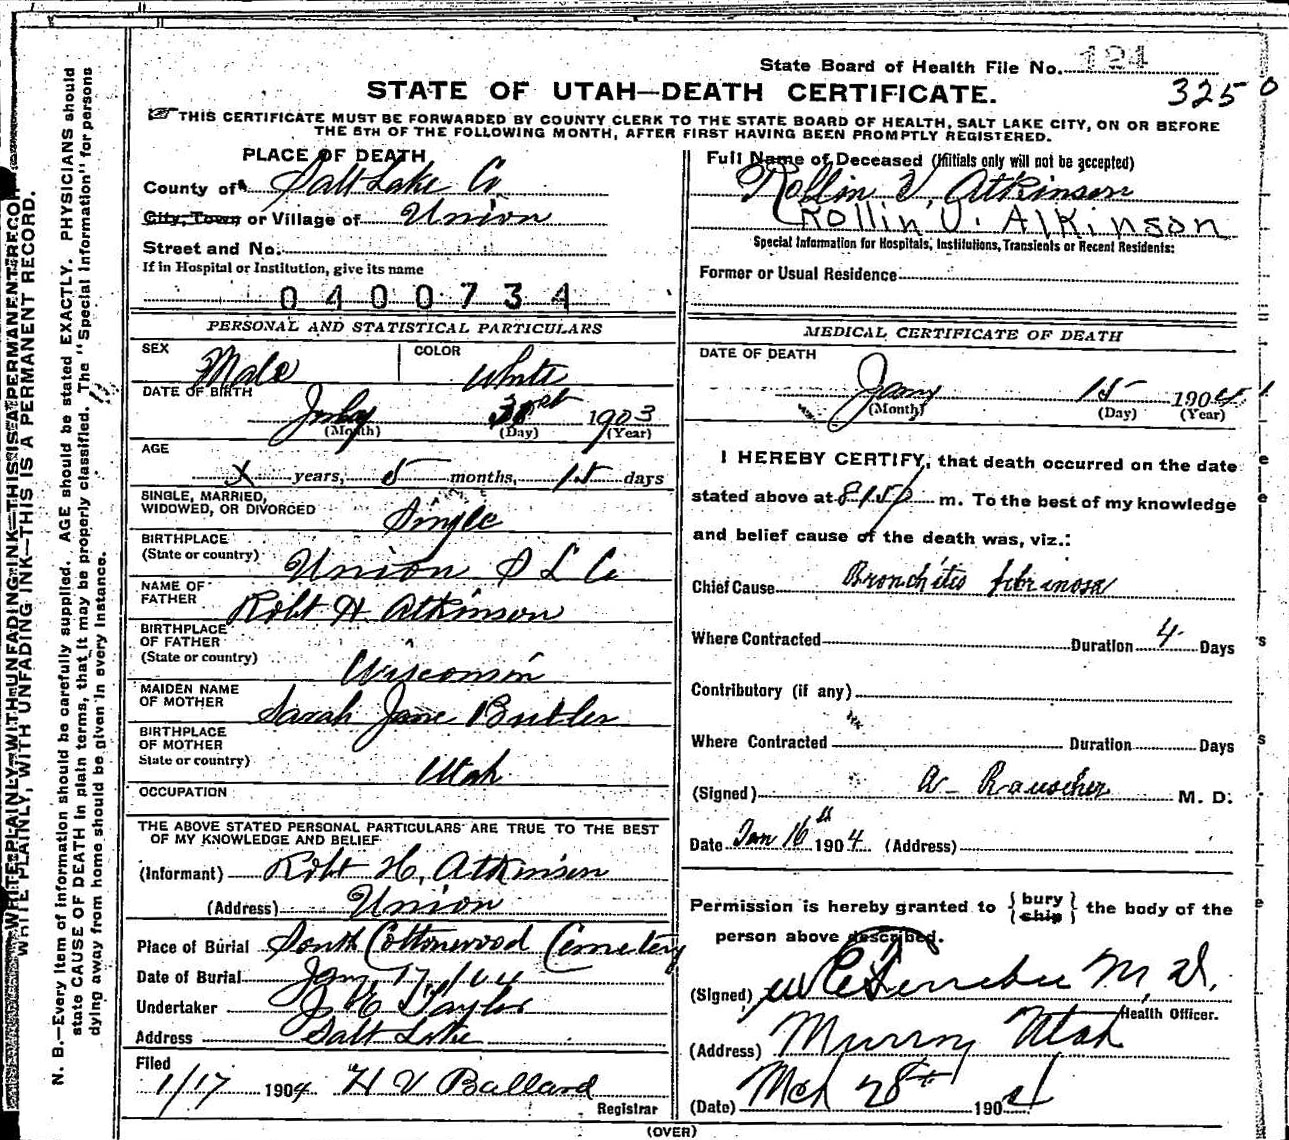 State Board of Health File No. 124
325 0
STATE OF UTAH—DEATH CERTIFICATE.
THIS CERTIFICATE MUST BE FORWARDED BY COUNTY CLERK TO THE STATE BOARD OF HEALTH, SALT LAKE CITY, ON OR BEFORE
THE 5TH OF THE FOLLOWING MONTH, AFTER FIRST HAVING BEEN PROMPTLY REGISTERED.
PLACE OF DEATH
County of Salt Lake Co
City, Town or Village of Union
Street and No.
If in Hospital or Institution, give its name
0400734
PERSONAL AND STATISTICAL PARTICULARS
SEX Male
COLOR White
DATE OF BIRTH
July 1903
(Month) (Day) (Year)
AGE
X years, 5 months, 15 days
SINGLE, MARRIED,
WIDOWED, OR DIVORCED Single
BIRTHPLACE
(State or country) Union S L Co
NAME OF
FATHER Robt H. Atkinson
BIRTHPLACE
OF FATHER
(State or country) Wisconsin
MAIDEN NAME
OF MOTHER Sarah Jane Butler
BIRTHPLACE
OF MOTHER
State or country) Utah
OCCUPATION
THE ABOVE STATED PERSONAL PARTICULARS ARE TRUE TO THE BEST
OF MY KNOWLEDGE AND BELIEF
(Informant) Robt H. Atkinson
(Address) Union
Place of Burial South Cottonwood Cemetery
Date of Burial Jany 17/04
Undertaker Taylor
Address Salt Lake
Filed
1/17 1904 H V Ballard
Registrar
Full Name of Deceased (Initials only will not be accepted)
Rollin V. Atkinson
Rollin V. Atkinson
Special Information for Hospitals, Institutions, Transients or Recent Residents:
Former or Usual Residence
MEDICAL CERTIFICATE OF DEATH
DATE OF DEATH
Jany 15 1904
(Month) (Day) (Year)
I HEREBY CERTIFY, that death occurred on the date
stated above at 815 p m. To the best of my knowledge
and belief cause of the death was, viz.:
Chief Cause Bronchitis fibrinosa
Where Contracted Duration 4 Days
Contributory (if any)
Where Contracted Duration Days
(Signed) A. Rauscher M. D.
Date Jan 16th 1904 (Address)
Permission is hereby granted to {bury
{ship} the body of the
person above described.
(Signed) M. D.
Health Officer.
(Address) Murray Utah
(Date) Mch 28th 1904
(OVER)
WRITE PLAINLY, WITH UNFADING INK—THIS IS A PERMANENT RECORD.
N. B.—Every item of information should be carefully supplied. AGE should be stated EXACTLY. PHYSICIANS should
state CAUSE OF DEATH in plain terms, that it may be properly classified. The "Special Information" for persons
dying away from home should be given in every instance.